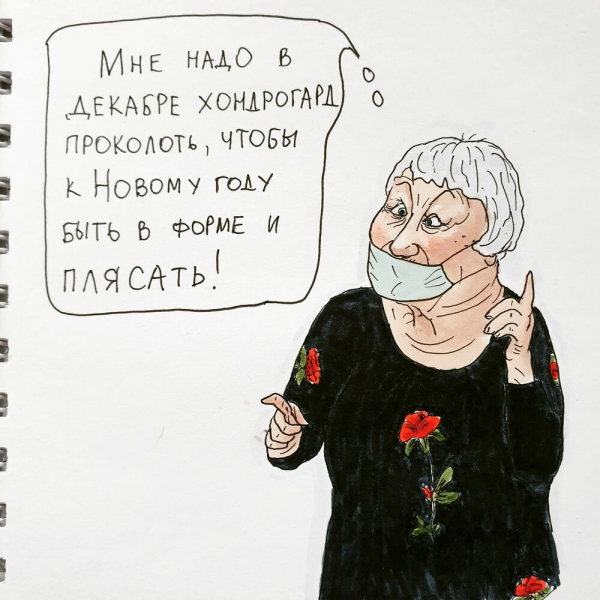 Мне надо в
декабре хондрогард
проколоть, чтобы
к Новому году
быть в форме и
плясать!